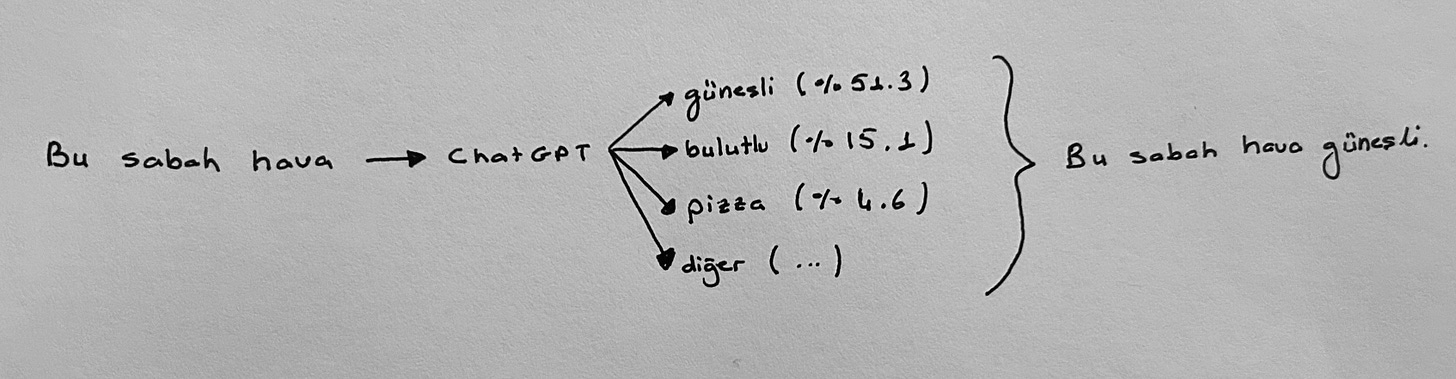 Bu sabah hava → ChatGPT
güneşli (% 51.3)
bulutlu (% 15.1)
pizza (% 4.6)
diğer (...)
Bu sabah hava güneşli.